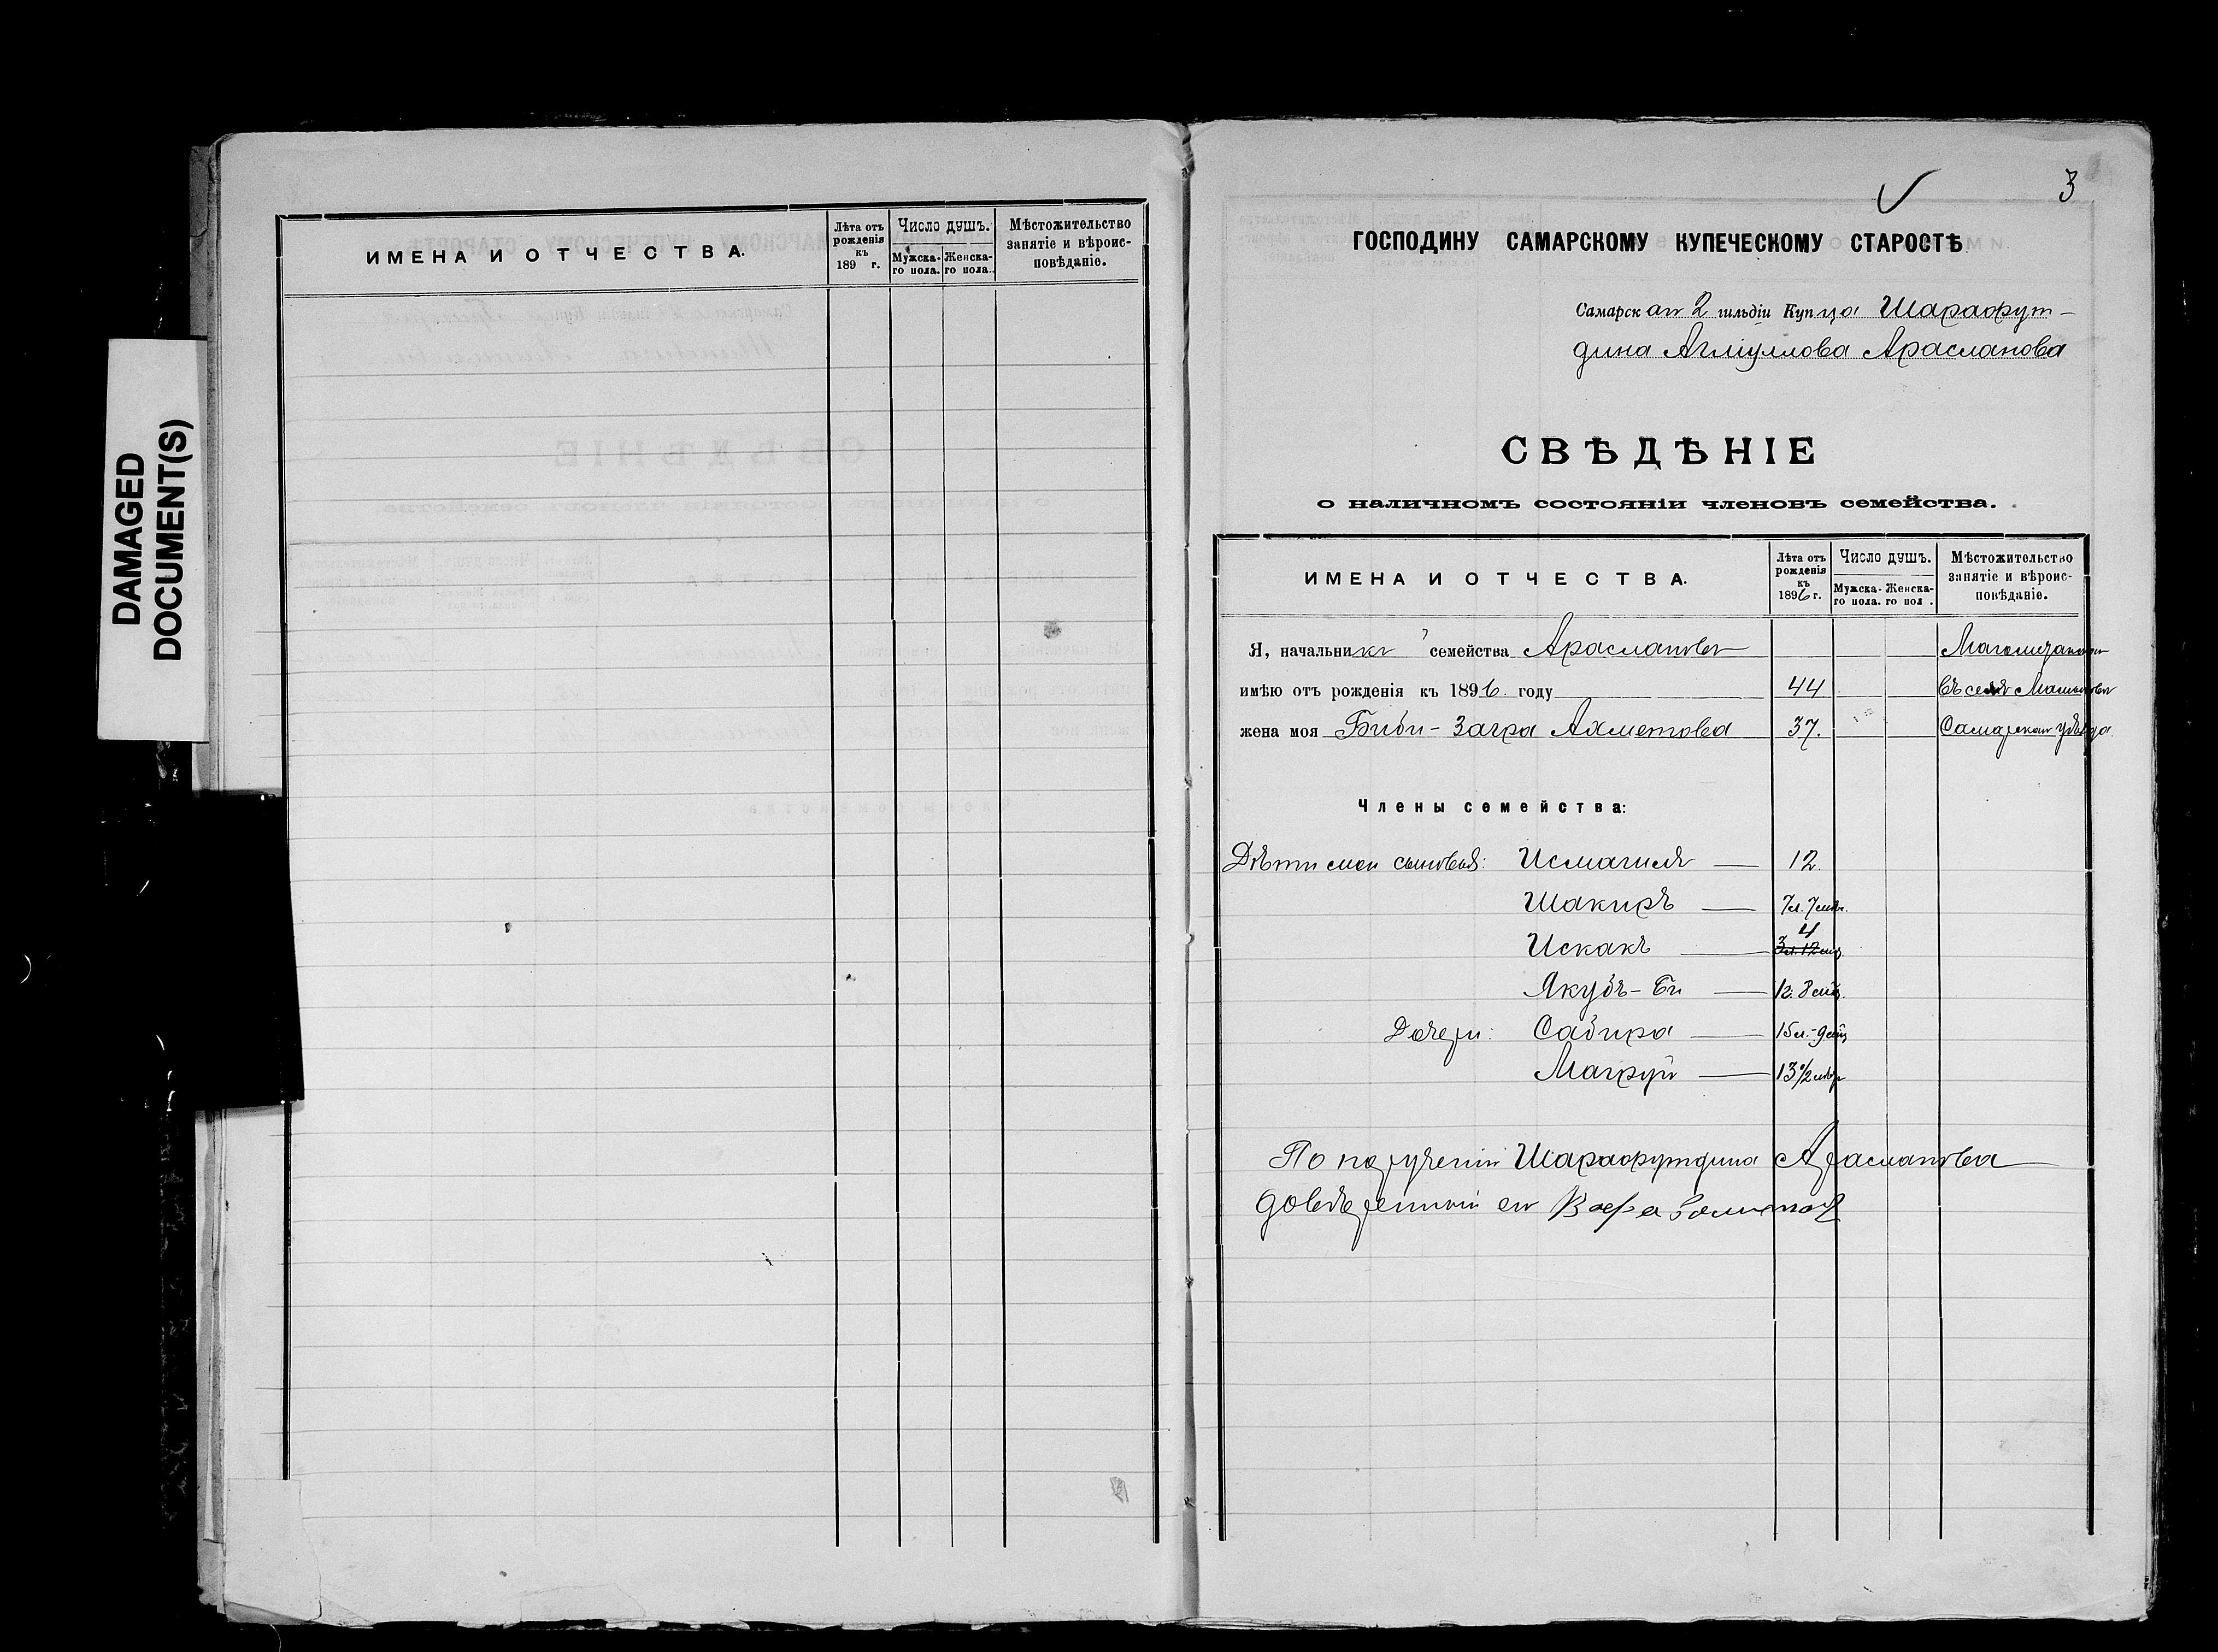 DAMAGED
DOCUMENT(S)
ИМЕНА И ОТЧЕСТВА.
Лѣта отъ рожденія къ 189 г.
Число душъ.
Мужска-го пола.
Женска-го пола.
Мѣстожительство занятіе и вѣроис-повѣданіе.
3
ГОСПОДИНУ САМАРСКОМУ КУПЕЧЕСКОМУ СТАРОСТѢ
Самарскаго 2 гильдіи Купца Шарафут-
дина Аглиуллова Арасланова
СВѢДѢНІЕ
о наличномъ состояніи членовъ семейства.
ИМЕНА И ОТЧЕСТВА.
Лѣта отъ рожденія къ 1896 г.
Число душъ.
Мужска-го пола.
Женска-го пол .
Мѣстожительство занятіе и вѣроис-повѣданіе.
Я, начальникъ семейства Араслановъ
имѣю отъ рожденія къ 1896. году 44 Въ селѣ
жена моя Биби-Загра Ахметова 37. Самарскаго уѣзда
Члены семейства:
Дѣти мои сыновья: Исмагилъ 12.
Шакиръ 7л. 7мѣс.
4
Искакъ 3л. 12мѣс.
Якубъ-Би 1г. 8мѣс.
Дочери: Сабира 15л.-9мѣс
Магруй 13 1/2
По порученію Шарафутдина Арасланова
довѣренный его